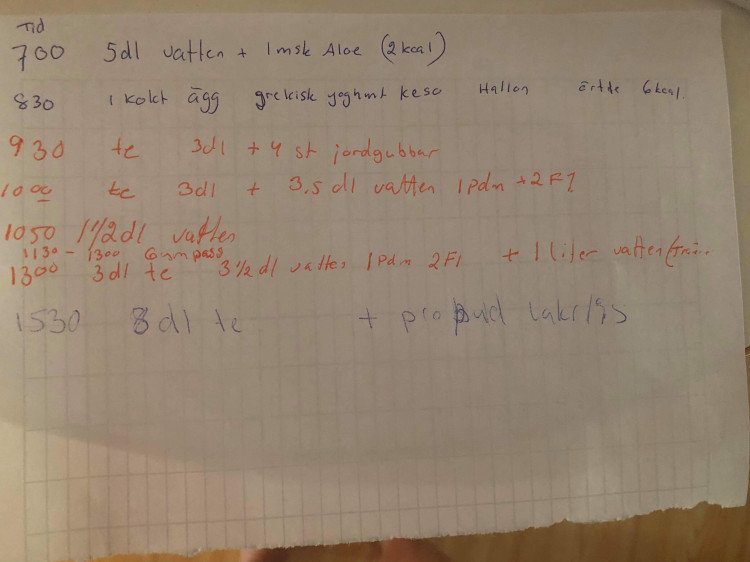 Tid
700 5dl vatten + 1 msk Aloe (2kcal)
830 1 kokt ägg grekisk yoghurt keso Hallon ärtde 6kcal.
930 te 3dl + 4 st jordgubbar
1000 te 3dl + 3,5 dl vatten 1pdm + 2F1
1050 1 1/2 dl vatten
1130 - 1300 Gympass
1300 3dl te 3 1/2 dl vatten 1pdm 2F1 + 1 liter vatten
1530 3dl te + lakrits